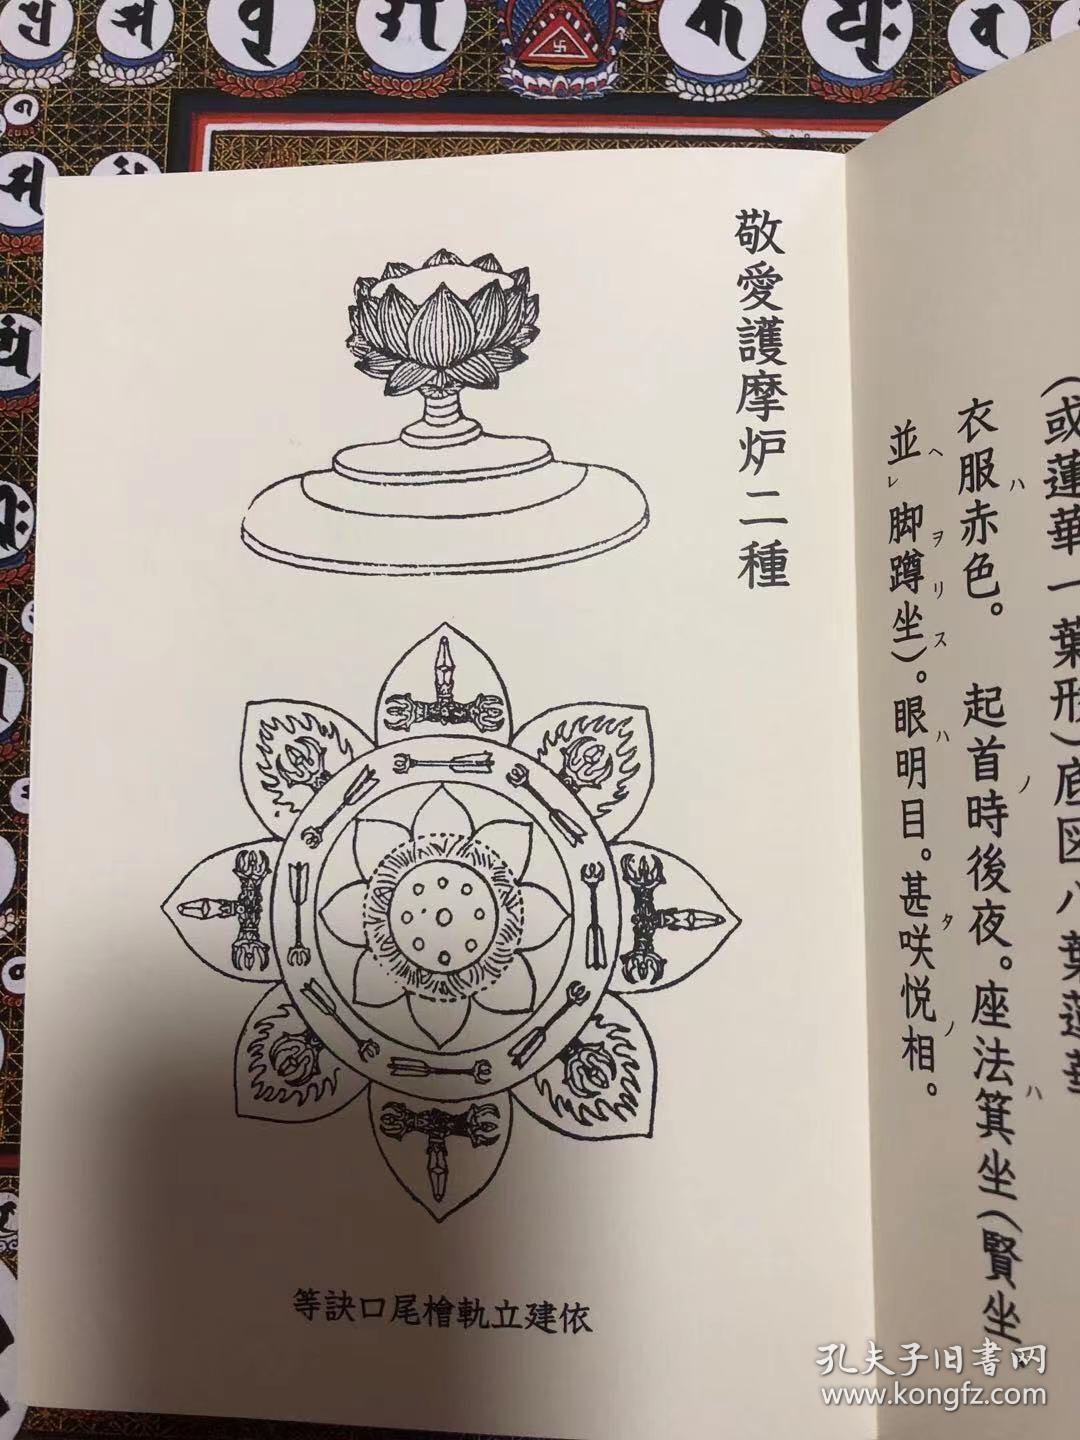 (或蓮華一葉形)底図八葉蓮華
衣服ハ赤色。 起首ノ時後夜。座法ハ箕坐(賢坐、
並ヘレ脚ヲ蹲リ坐ス)。眼ハ明目。甚タ咲悦ノ相。
敬愛護摩炉二種
等訣口尾檜軌立建依
孔夫子旧書网
www.kongfz.com